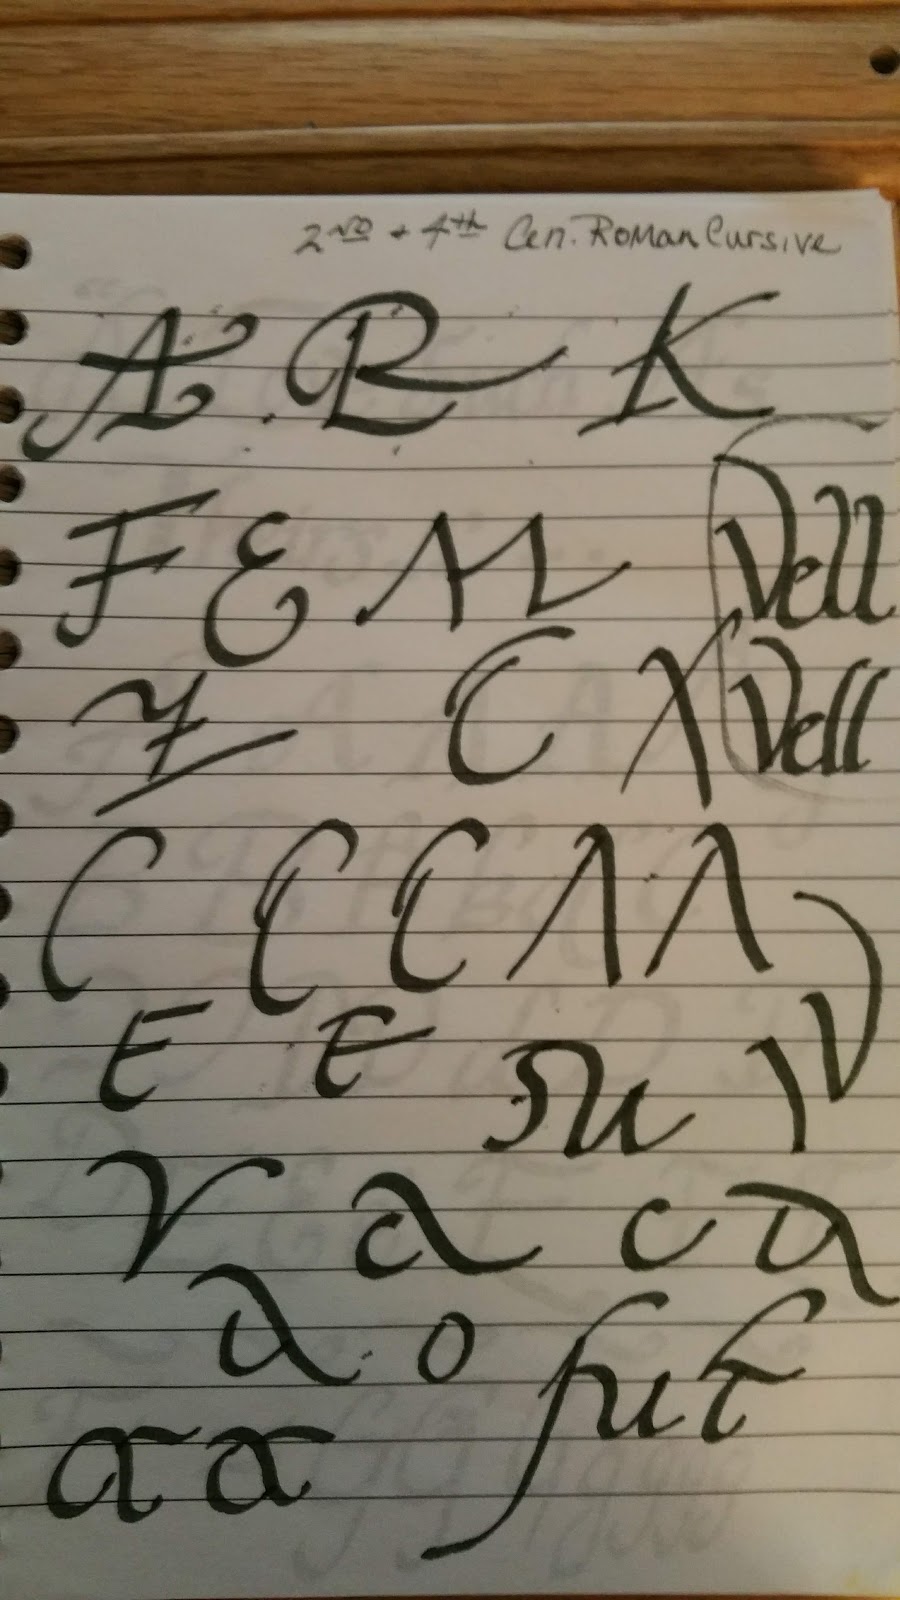 2ND + 4th Cen. Roman Cursive
A R K
F E M Vell
Z C X Vell
C C C Λ Λ
E E
V a c a
a o